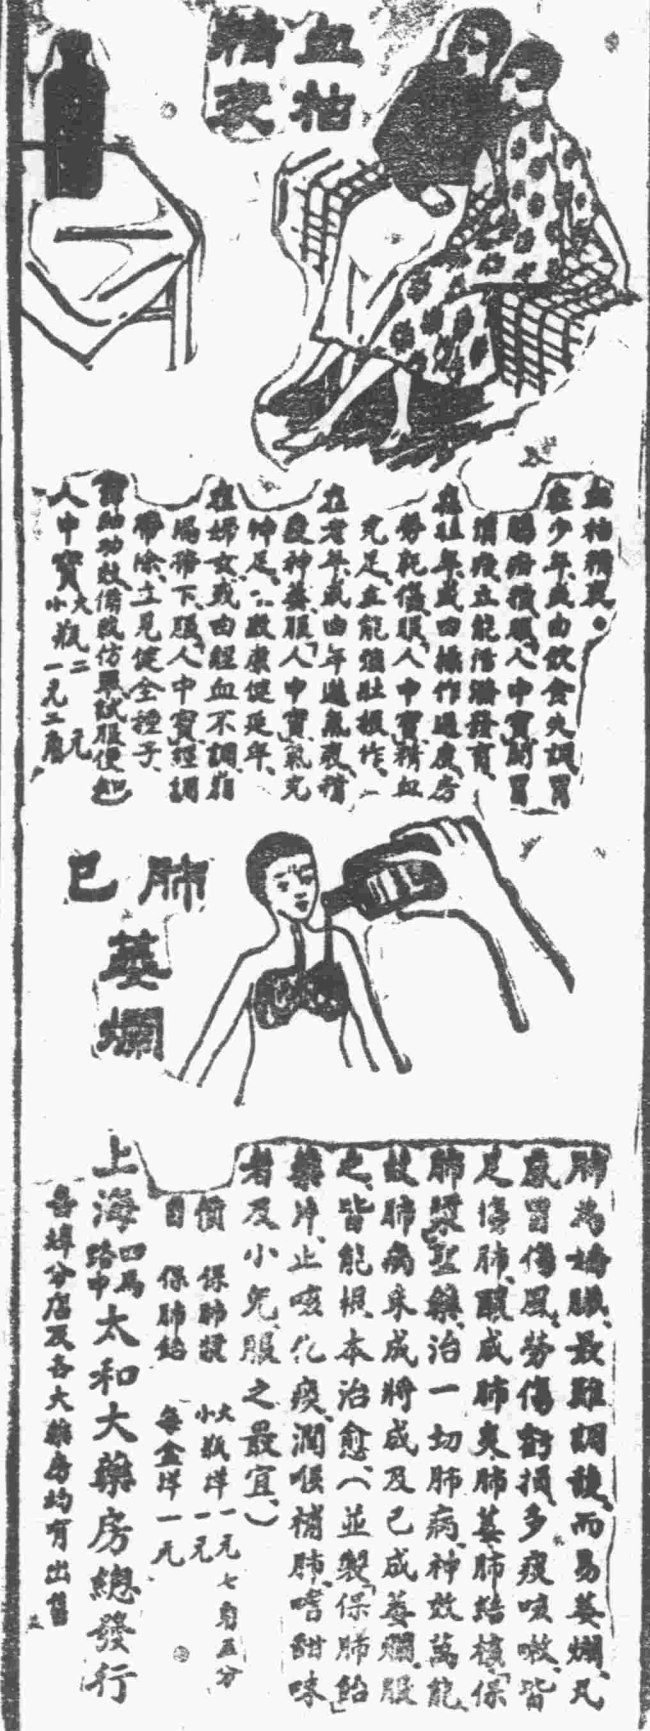 血枯
精衰
血枯精衰●
在少年或由飲食失調胃
腸積服人中寶則胃
能防發育
在壯年或由操作過度房
勞耗傷服人中寶精血
充足立能強壯操作
在老年或由年邁氣衰精
疲神萎服人中寶氣充
神足康健延年
在婦女或由經血不調
帶下服人中寶經調
帶除立見健全種子
功效備載仿單試服便知
人中寶大瓶二元
小瓶一元二角
肺已
萎爛
肺為嬌臟最難調護而易萎爛凡
感冒傷風勞傷虧損多痰咳嗽皆
足傷肺釀成肺炎肺萎肺結核「保
肺漿」聖藥治一切肺病神效萬能
故肺病未成將成及已成萎爛服
之皆能根本治愈(並製「保肺飴」
藥片止咳化痰潤喉補肺嗜甜味
者及小兒服之最宜)
價 保肺漿 大瓶洋一元七角五分
小瓶洋一元
目 保肺飴 每盒洋一元
上海四馬路中太和大藥房總發行
各埠分店及各大藥房均有出售